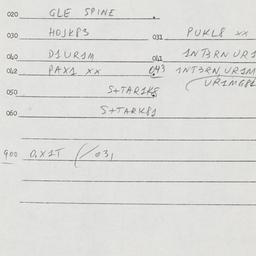 020 GLE SPINE
030 HOJK83 031 PUKL8 xx
040 D1UR1M 041 1NT3RNUR1
042 PAX1 xx 043 1NT3RNUR1M
UR1MG81
050 S+TAR1K8
060 S+TARK81
900 0,X1T (/031